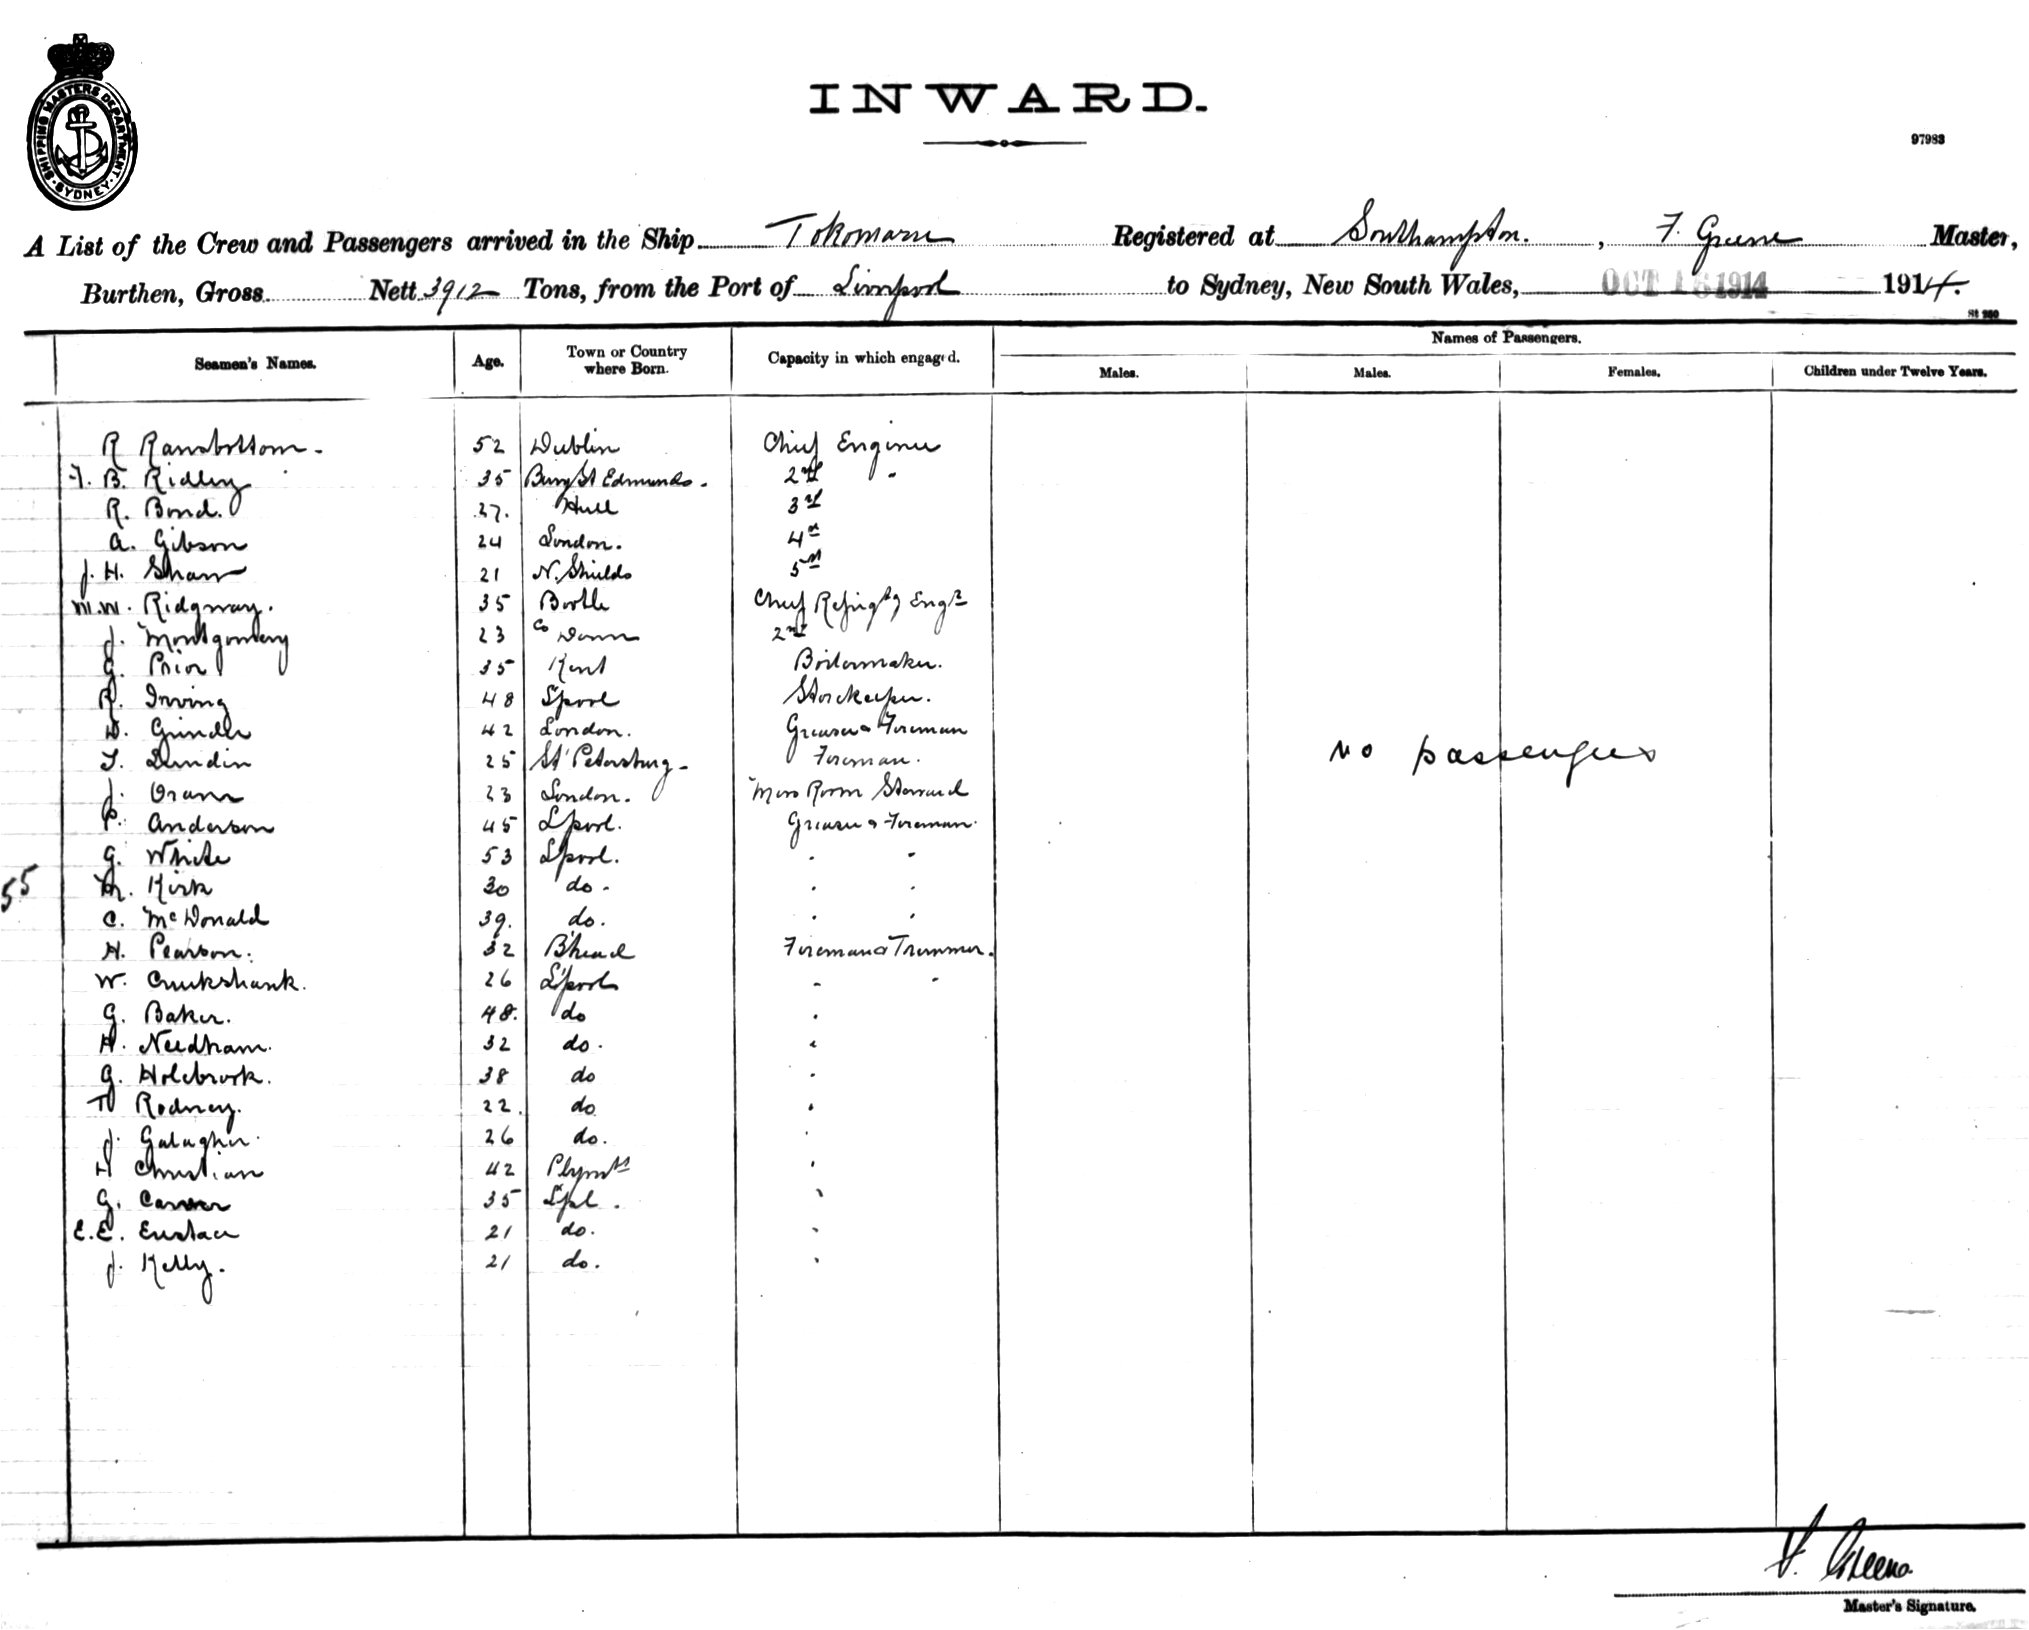 SHIPPING MASTERS DEPARTMENT · SYDNEY ·
INWARD.
97983
A List of the Crew and Passengers arrived in the Ship Tokomaru Registered at Southampton. , F. Greene Master,
Burthen, Gross Nett 3912 Tons, from the Port of Liverpool to Sydney, New South Wales, OCT 16 1914 1914.
St 250
Seamen's Names. Age. Town or Country where Born. Capacity in which engaged. Names of Passengers.
Males. Males. Females. Children under Twelve Years.
R Ramsbottom - 52 Dublin Chief Engineer
F. B. Ridley 35 Bury St Edmunds. 2nd "
R. Bond. 27. Hull 3rd
A. Gibson 24 London. 4th
J. H. Shaw 21 N. Shields 5th
W. W. Ridgway. 35 Bootle Chief Refrigtg Engr
J. Montgomery 23 Co Down 2nd
G. Prior 35 Kent Boilermaker.
R. Irving 48 L'pool Storekeeper.
D. Grinder 42 London. Greaser & Fireman
T. Dundin 25 St Petersburg - Fireman.
no passengers
J. Oram 23 London. Mess Room Steward
P. Anderson 45 L'pool. Greaser & Fireman.
G. White 53 L'pool. " "
55
M. Kirk 30 do. " "
C. McDonald 39. do. " "
H. Pearson. 32 B'head Fireman & Trimmer.
W. Cruikshank. 26 L'pool " "
G. Baker. 48. do "
H. Needham. 32 do. "
G. Holebrook. 38 do "
T Rodney. 22. do "
J. Galagher. 26 do. "
H Christian 42 Plymth "
G. Carver 35 L'pl. "
E. E. Eustace 21 do. "
J. Kelly. 21 do. "
F. Greene
Master's Signature.